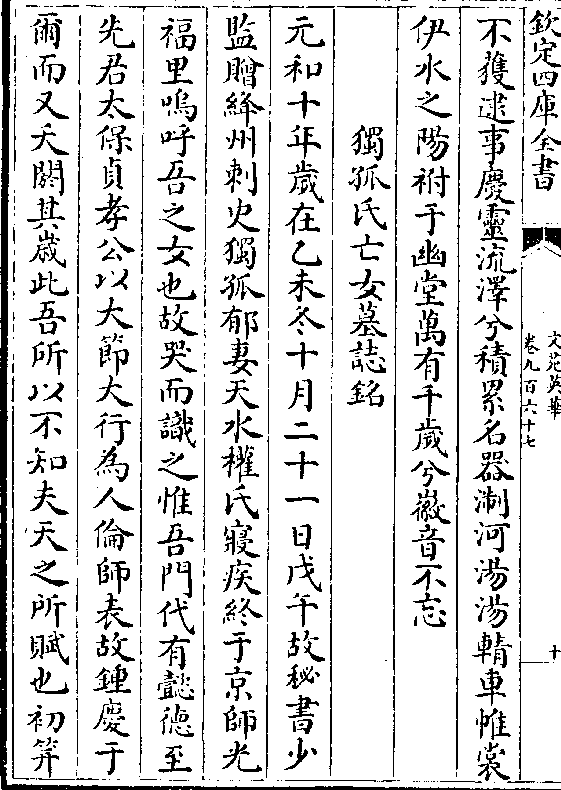 欽定四庫全書
文苑英華
卷九百六十七
十
不獲逮事慶靈流澤兮積累名器淛河湯湯輤車帷裳
伊水之陽祔于幽堂萬有千歲兮徽音不忘
獨孤氏亡女墓誌銘
元和十年歲在乙未冬十月二十一日戊午故秘書少
監贈絳州刺史獨孤郁妻天水權氏寢疾終于京師光
福里嗚呼吾之女也故哭而識之惟吾門代有懿德至
先君太保貞孝公以大節大行為人倫師表故鍾慶于
爾而又夭閼其歲此吾所以不知夫天之所賦也初笄